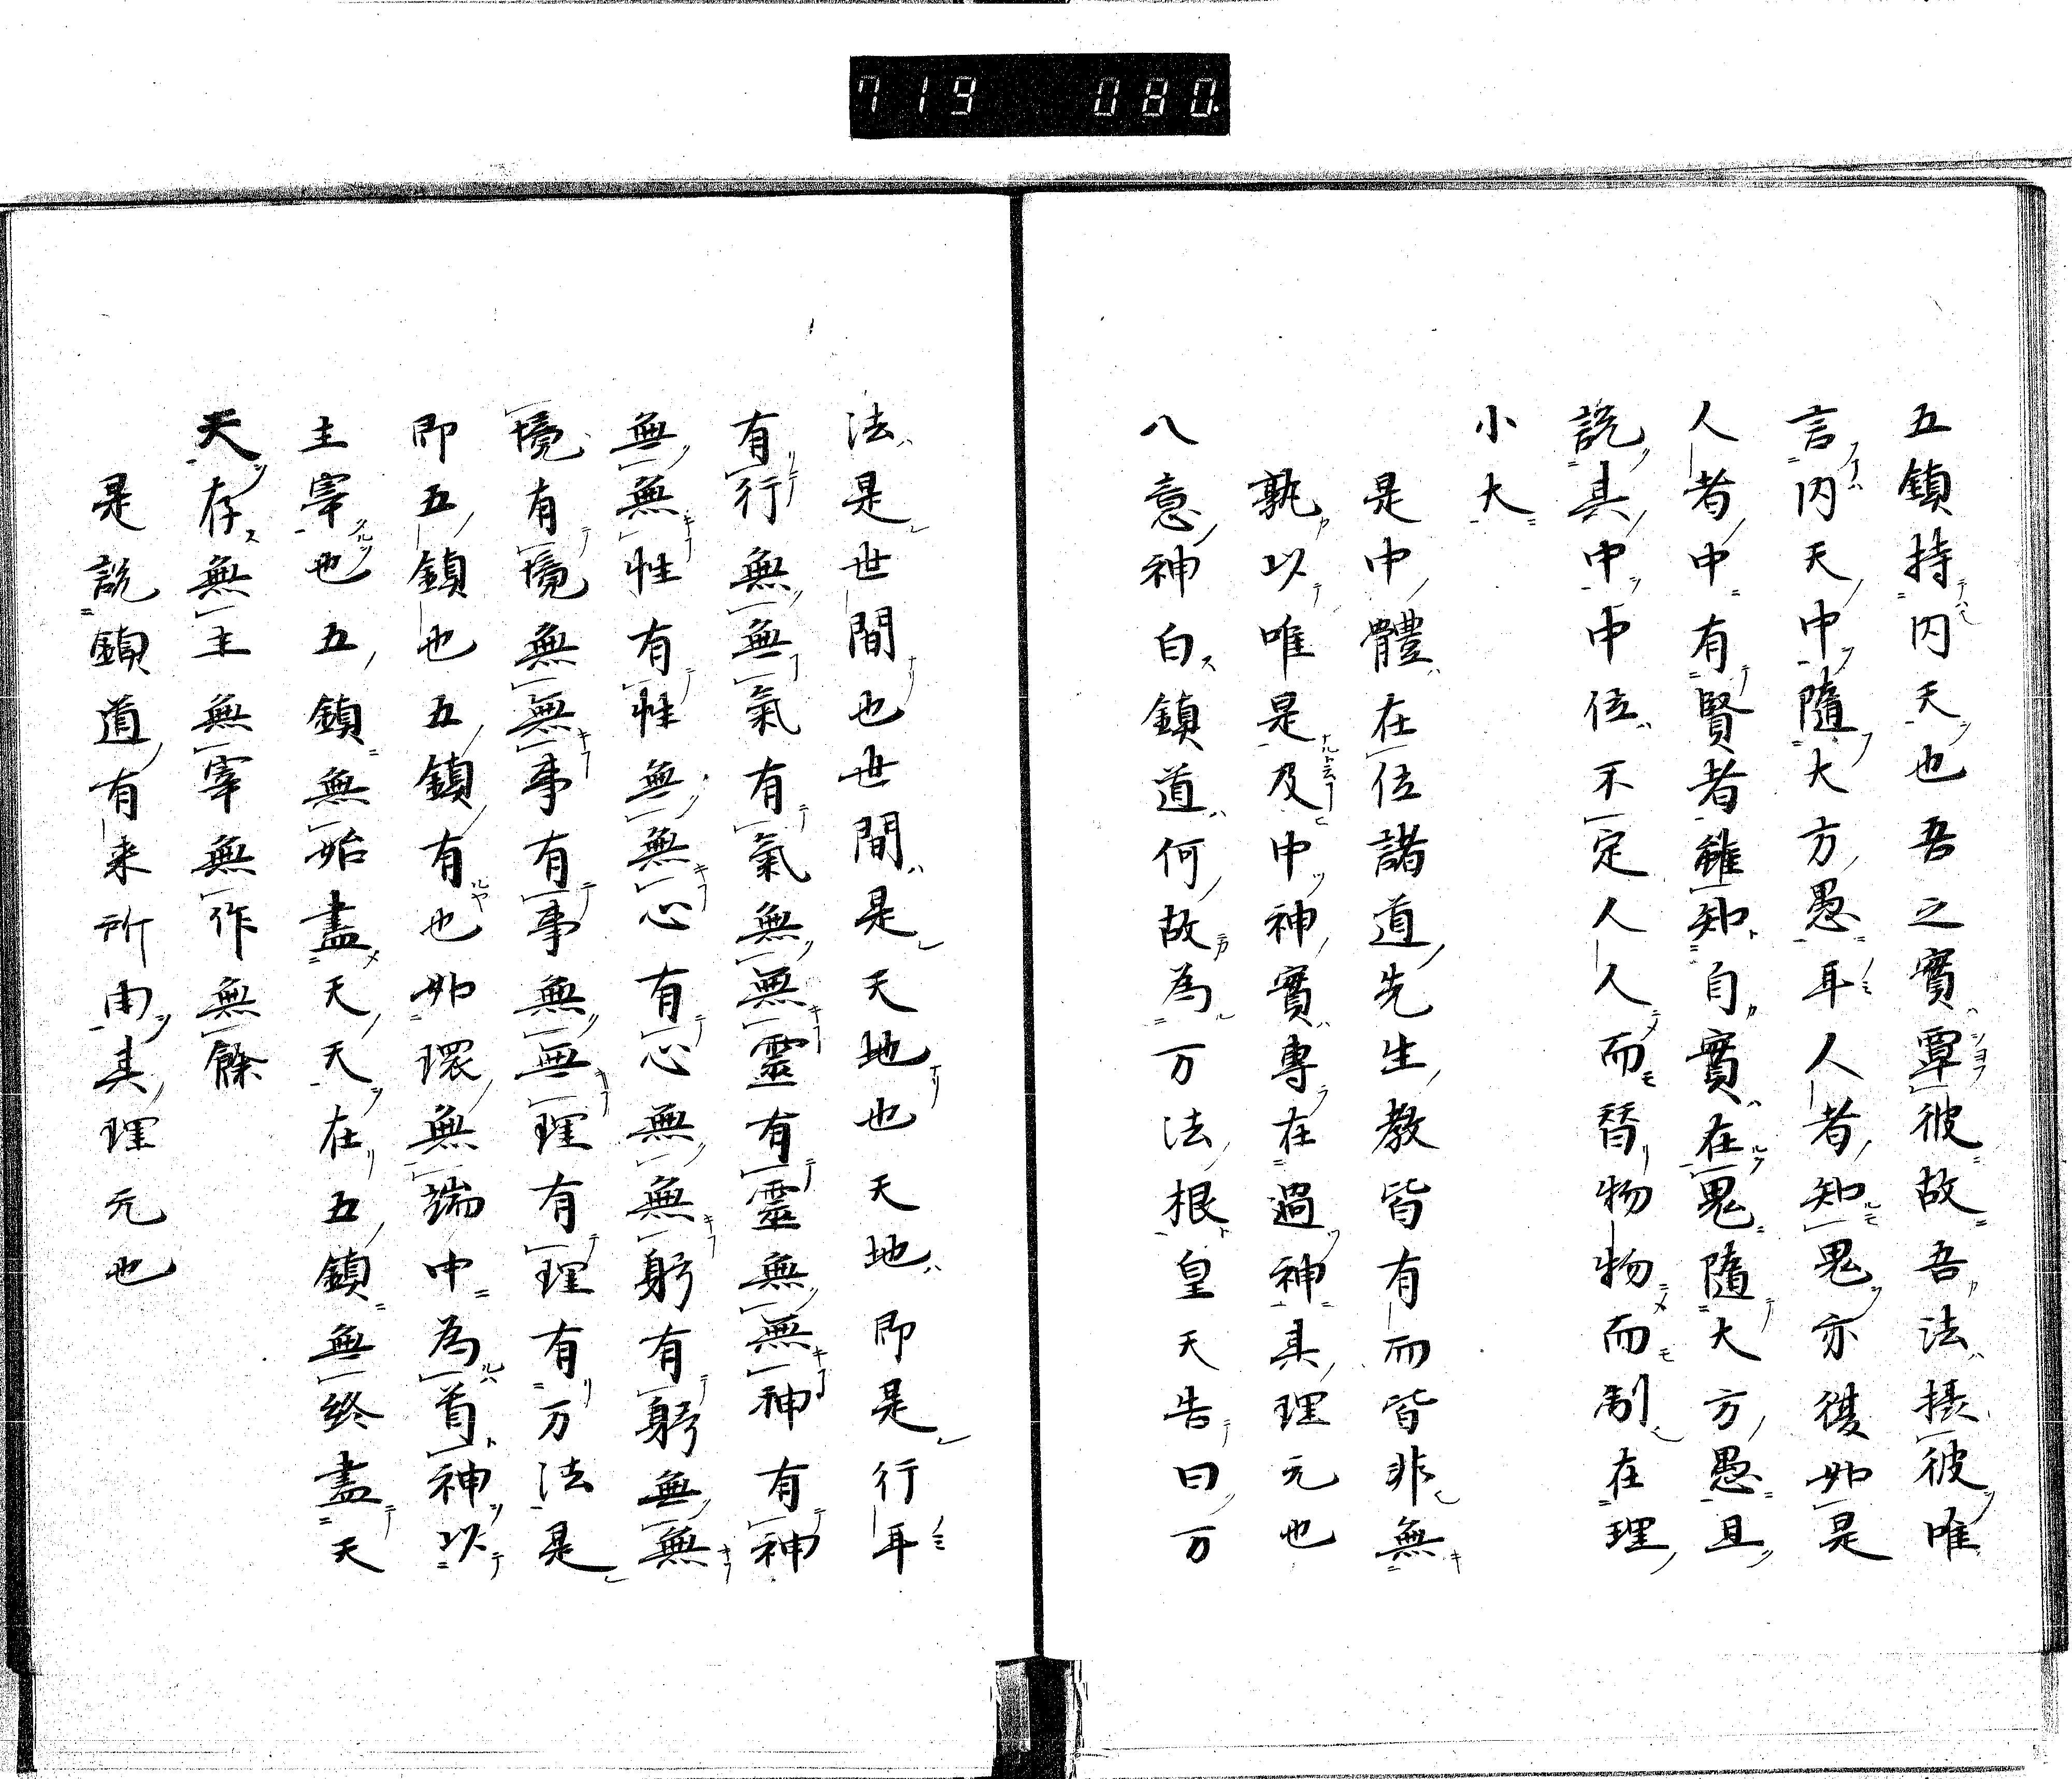 719 080
五鎮持内天也吾之實覃彼故吾法攝彼唯
言内天中隨大方愚耳人者知鬼亦復如是
人者中有賢者雖知自實在鬼隨大方愚且
說其中中位不定人人而替物物而制在理
小大
是中體在位諸道先生教皆有而皆非無
孰以唯是及中神實專在過神其理元也
八意神白鎮道何故為万法根皇天告曰万
法是世間也世間是天地也天地即是行耳
有行無無氣有氣無無靈有靈無無神有神
無無性有性無無心有心無無躬有躬無無
境有境無無事有事無無理有理有万法是
即五鎮也五鎮有也如環無端中為首神以
主宰也五鎮無始盡天天在五鎮無終盡天
天存無主無宰無作無餘
是說鎮道有来所由其理元也